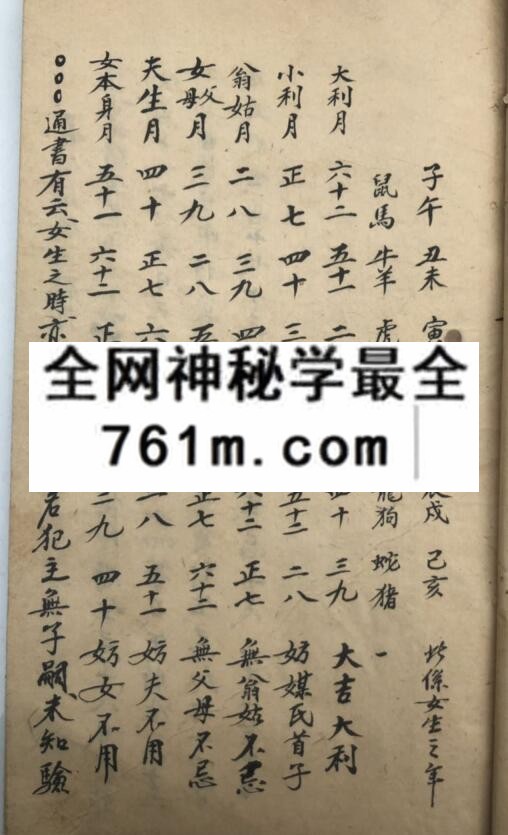 子午 丑未 寅 戌 己亥 此係女生之年
鼠馬 牛羊 虎 龍狗 蛇猪 一
大利月 六十二 五十一 二 十 三九 大吉大利
小利月 正七 四十 三 五十二 二八 妨媒氏首子
翁姑月 二八 三九 四 六十二 正七 無翁姑不忌
女父母月 三九 二八 五 正七 六十二 無父母不忌
夫生月 四十 正七 六 八 五十一 妨夫不用
女本身月 五十一 六十二 正 三九 四十 妨女不用
○○○通書有云女生之時亦 若犯主無子嗣未知驗
全网神秘学最全
761m.com